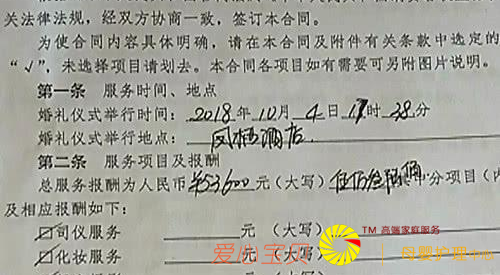 关法律法规，经双方协商一致，签订本合同。
为使合同内容具体明确，请在本合同及附件有关条款中选定的
“√”，未选择项目请划去。本合同各项目如有需要可另附图片说明。
第一条 服务时间、地点
婚礼仪式举行时间：2018年10月4日11时38分
婚礼仪式举行地点：凤栖酒店
第二条 服务项目及报酬
总服务报酬为人民币¥53600元（大写）分项目（内
及相应报酬如下：
司仪服务 元（大写）
化妆服务 元（大写）
爱心宝贝
TM 高端家庭服务
母婴护理